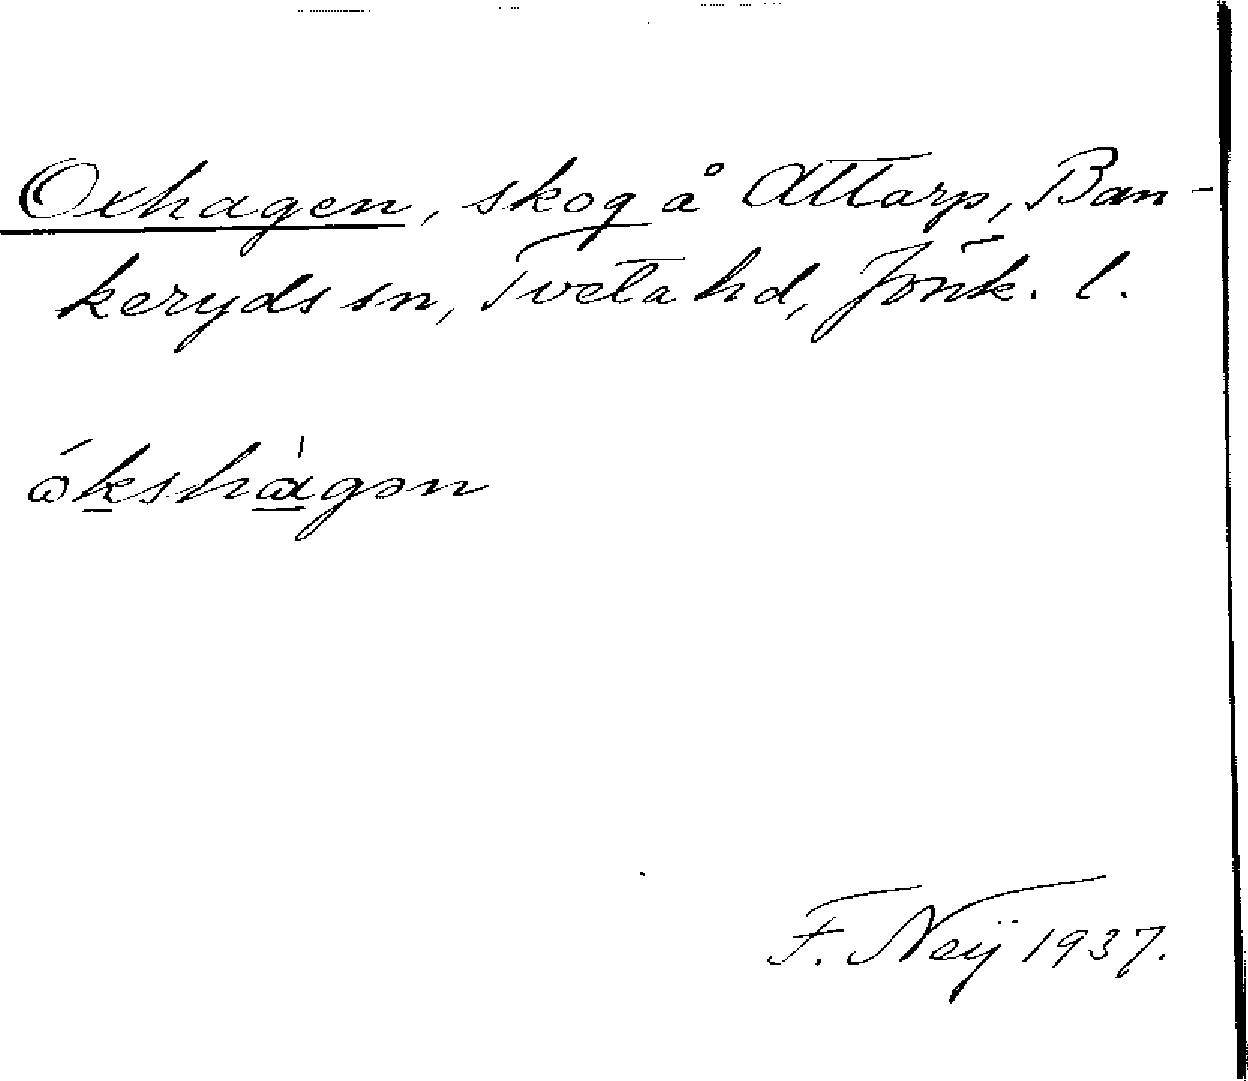 Oxhagen, skog å Attarp, Ban-
keryds sn, Tveta hd, Jönk. l.
ókshàgən
F. Neÿ 1937.